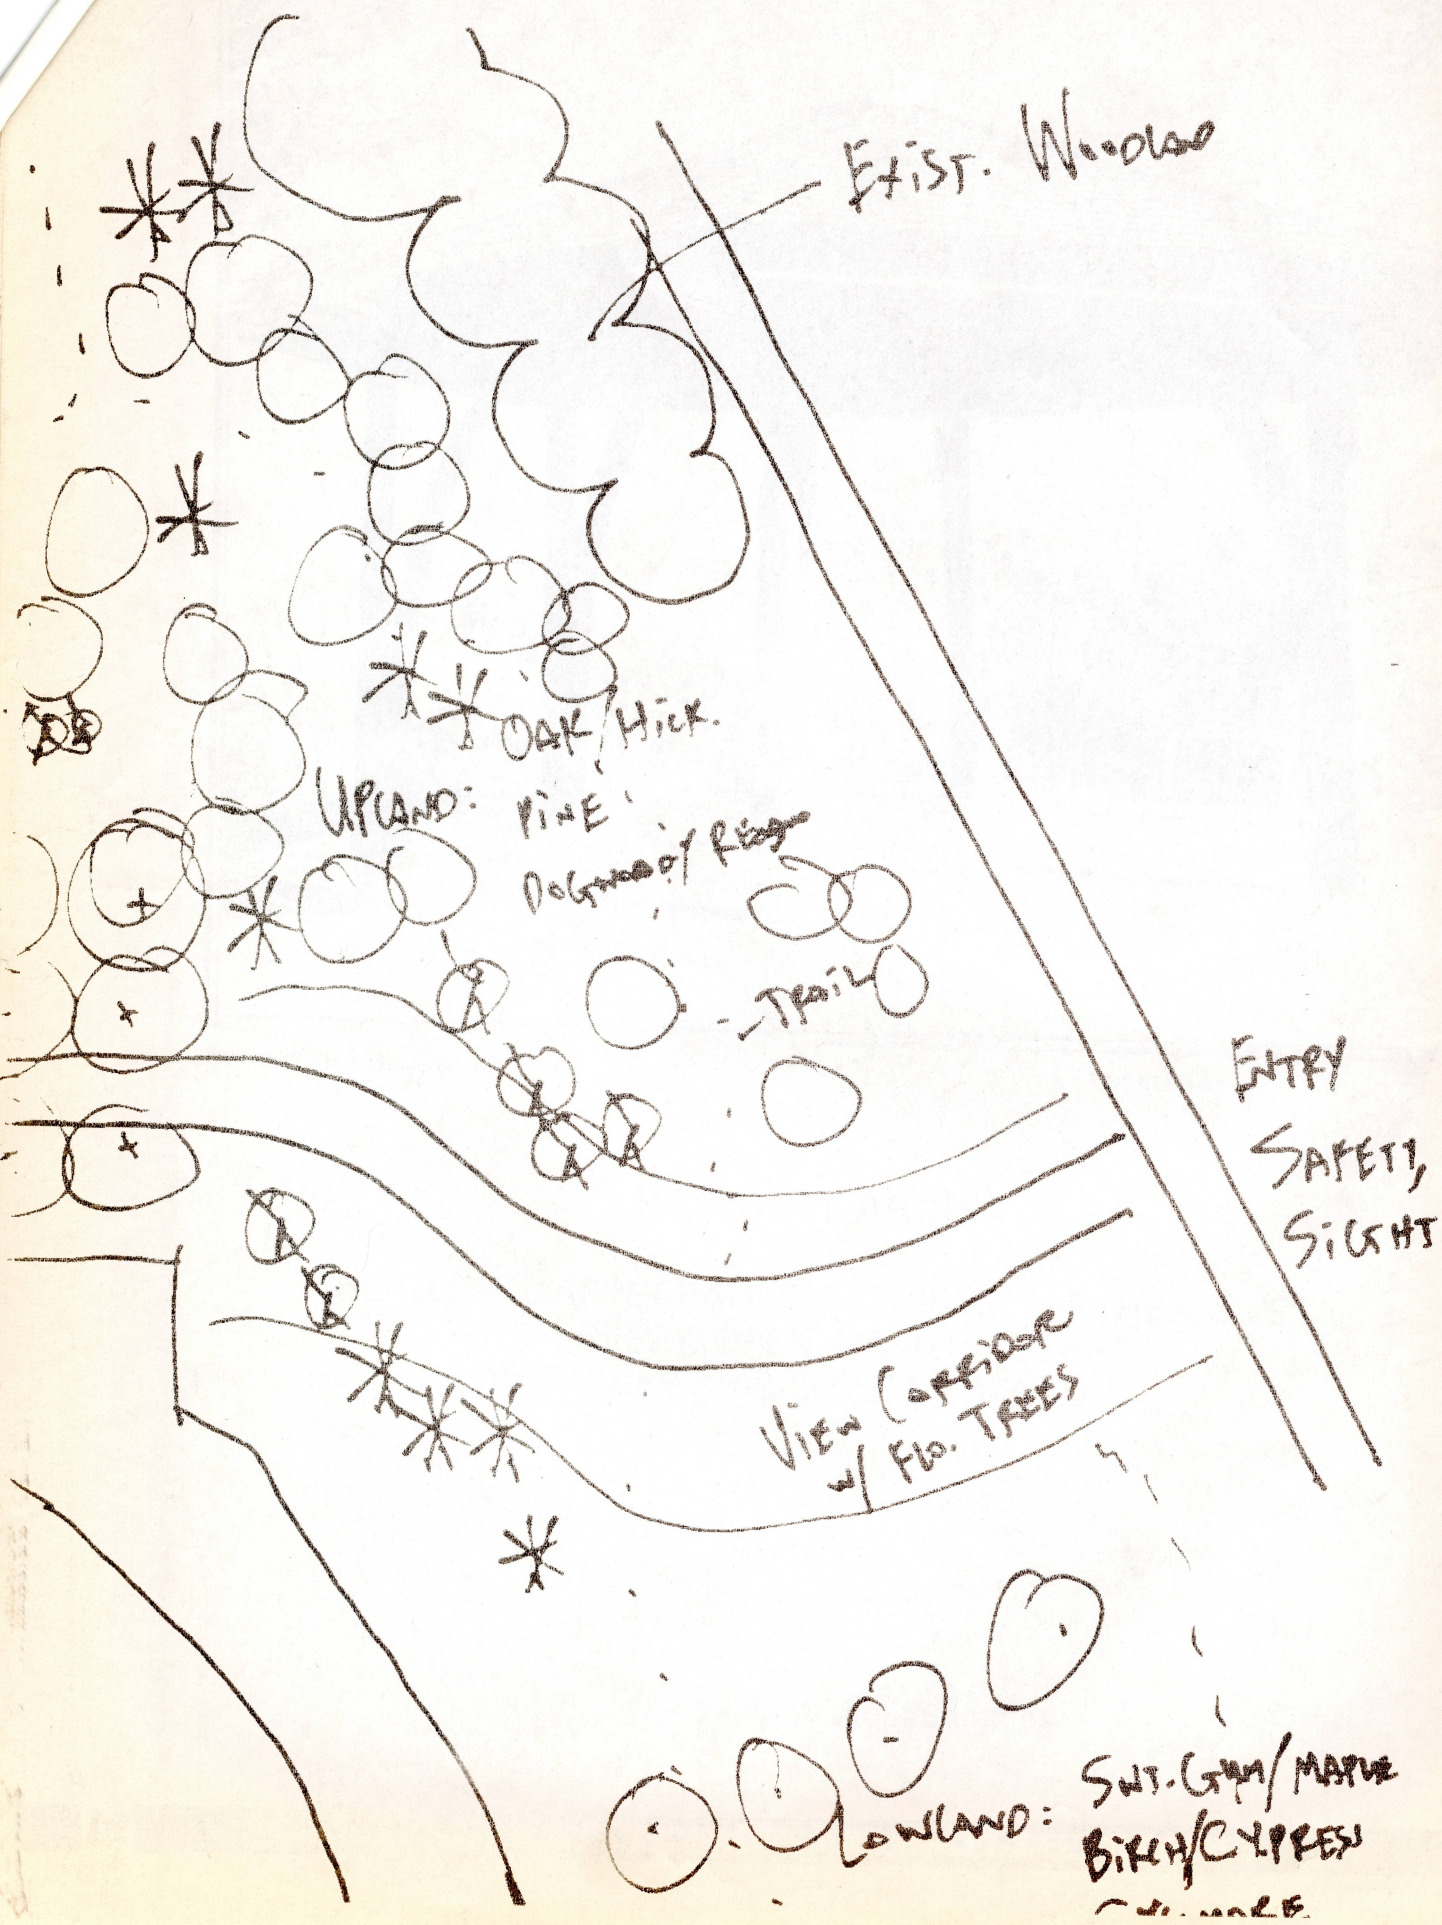 EXIST. WOODLAND
OAK/HICK.
UPLAND: PINE
DOGWOOD/
TRAIL
ENTRY
SAFETY,
SIGHT
VIEW CORRIDOR
W/ FLO. TREES
LOWLAND: SWT. GUM/MAPLE
BIRCH/CYPRESS